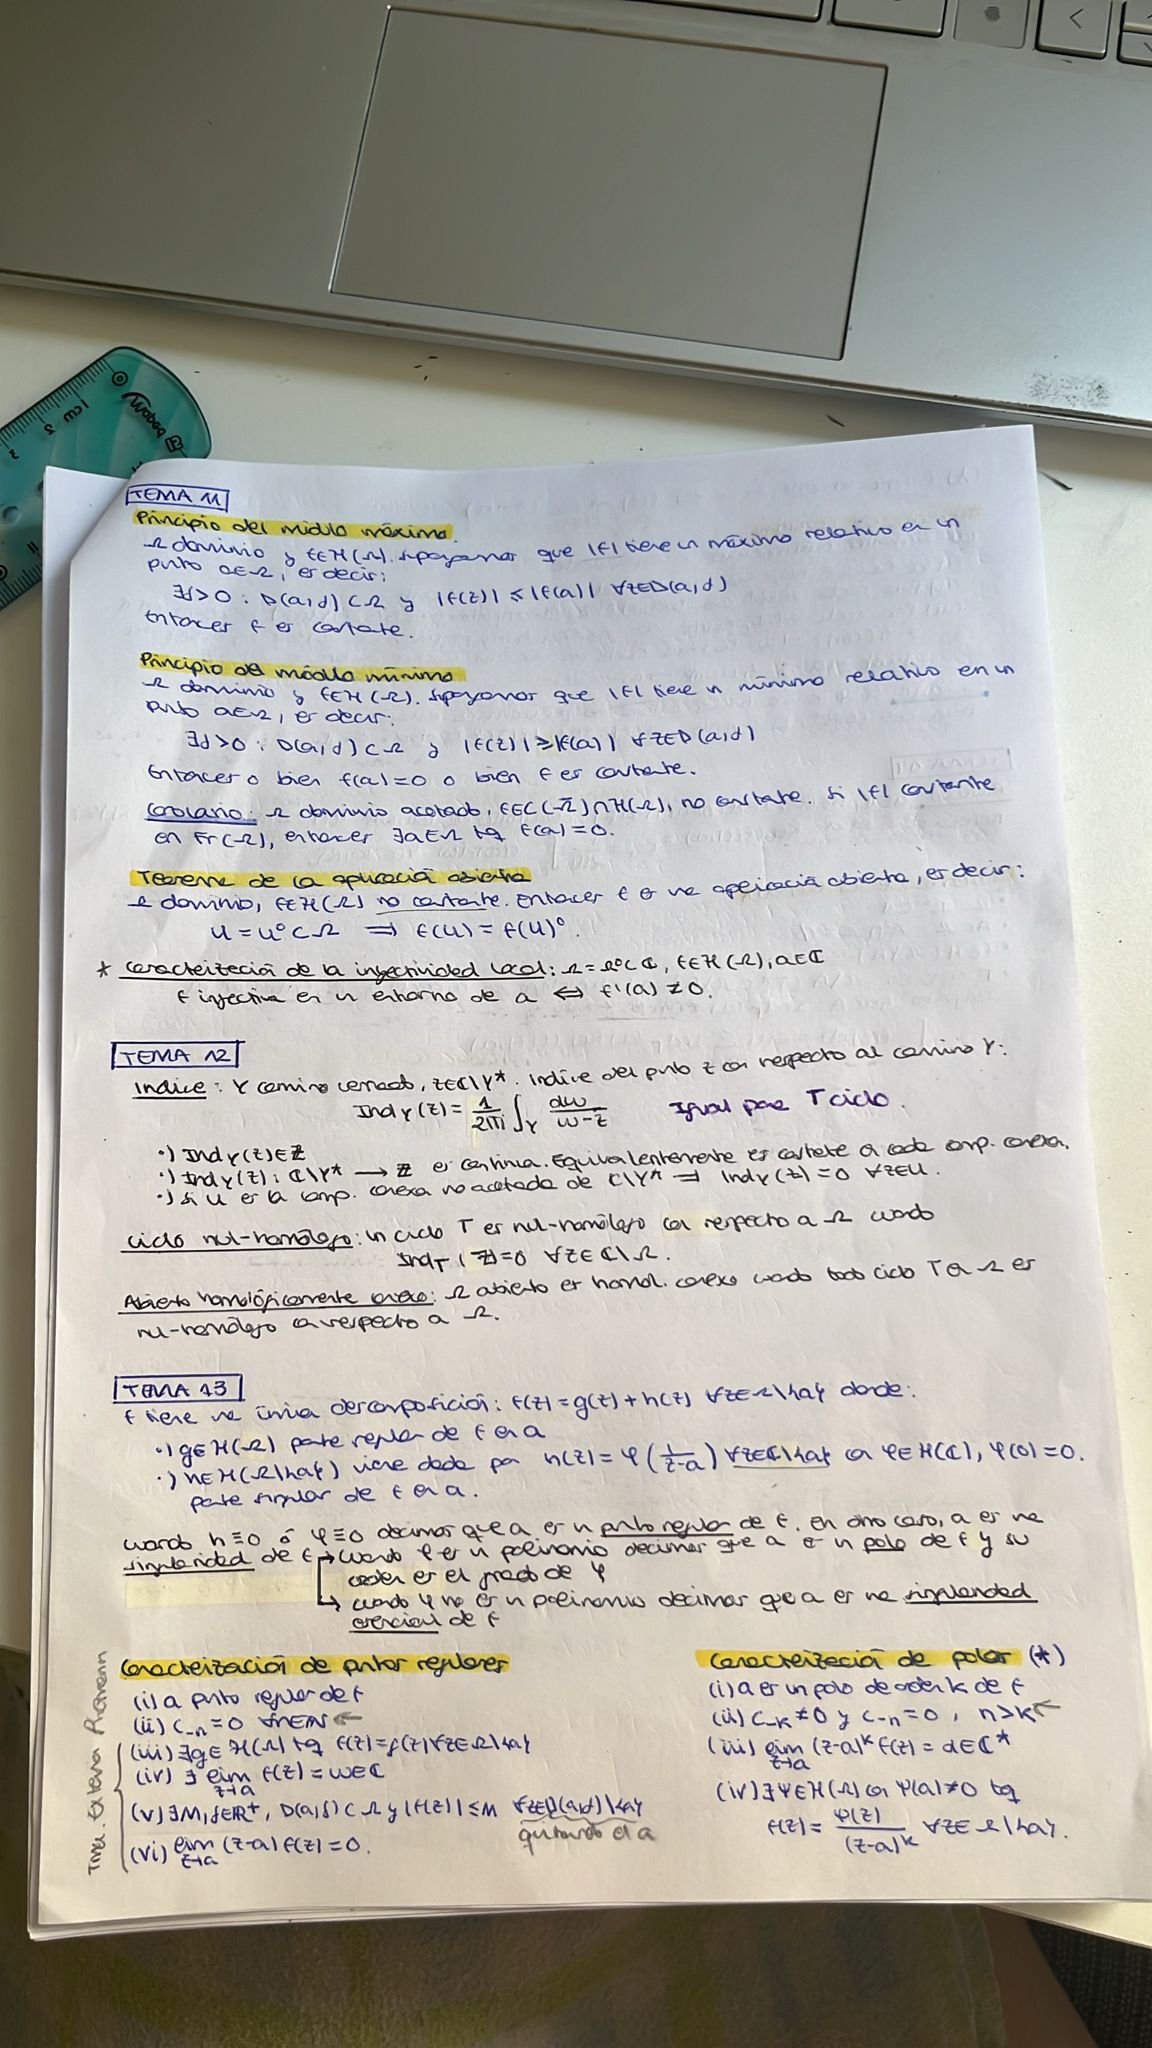 TEMA 11
Principio del módulo máximo.
Ω dominio y f∈H(Ω). Supongamos que |f| tiene un máximo relativo en un
punto a∈Ω, es decir:
∃δ>0 : D(a,δ)⊂Ω y |f(z)| ≤ |f(a)| ∀z∈D(a,δ)
Entonces f es constante.
Principio del módulo mínimo
Ω dominio y f∈H(Ω). Supongamos que |f| tiene un mínimo relativo en un
punto a∈Ω, es decir:
∃δ>0 : D(a,δ)⊂Ω y |f(z)| ≥ |f(a)| ∀z∈D(a,δ)
Entonces o bien f(a)=0 o bien f es constante.
Corolario: Ω dominio acotado, f∈C(Ω̄)∩H(Ω), no constante. Si |f| constante
en Fr(Ω), entonces ∃a∈Ω tq f(a)=0.
Teorema de la aplicación abierta
Ω dominio, f∈H(Ω) no constante. Entonces f es una aplicación abierta, es decir:
U = U° ⊂ Ω ⟹ f(U) = f(U)°.
* Caracterización de la inyectividad local: Ω=Ω°⊂ℂ, f∈H(Ω), a∈ℂ
f inyectiva en un entorno de a ⟺ f'(a) ≠ 0.
TEMA 12
Indice: γ camino cerrado, z∈ℂ\γ*. Indice del punto z con respecto al camino γ:
Ind γ(z) = 1/2πi ∫γ dw/w-z Igual para Γ ciclo.
·) Ind γ(z)∈ℤ
·) Ind γ(z): ℂ\γ* → ℤ es continua. Equivalentemente es constante en cada comp. conexa.
·) Si U es la comp. conexa no acotada de ℂ\γ* ⟹ Ind γ(z)=0 ∀z∈U.
Ciclo nul-homólogo: un ciclo Γ es nul-homólogo con respecto a Ω cuando
IndΓ(z)=0 ∀z∈ℂ\Ω.
Abierto homológicamente conexo: Ω abierto es homol. conexo cuando todo ciclo Γ en Ω es
nul-homólogo con respecto a Ω.
TEMA 13
f tiene una única descomposición: f(z)=g(z)+h(z) ∀z∈Ω\{a} donde:
·) g∈H(Ω) parte regular de f en a
·) h∈H(Ω\{a}) viene dada por h(z)=φ(1/z-a) ∀z∈ℂ\{a} con φ∈H(ℂ), φ(0)=0.
parte singular de f en a.
Cuando h≡0 ó φ≡0 decimos que a es un punto regular de f. En otro caso, a es una
singularidad de f → Cuando φ es un polinomio decimos que a es un polo de f y su
orden es el grado de φ
→ Cuando φ no es un polinomio decimos que a es una singularidad
esencial de f
Caracterización de puntos regulares
(i) a punto regular de f
(ii) c₋ₙ=0 ∀n∈ℕ ←
(iii) ∃g∈H(Ω) tq f(z)=g(z) ∀z∈Ω\{a}
(iv) ∃ lim z→a f(z)=w∈ℂ
(v) ∃M,δ∈ℝ⁺, D(a,δ)⊂Ω y |f(z)| ≤ M ∀z∈D(a,δ)\{a}
quitando el a
(vi) lim z→a (z-a)f(z)=0.
Tma. Extens Riemann
Caracterización de polos (*)
(i) a es un polo de orden k de f
(ii) c₋ₖ≠0 y c₋ₙ=0, n>k ←
(iii) lim z→a (z-a)ᵏ f(z) = α∈ℂ*
(iv) ∃Ψ∈H(Ω) con Ψ(a)≠0 tq
f(z) = Ψ(z)/(z-a)ᵏ ∀z∈Ω\{a}.